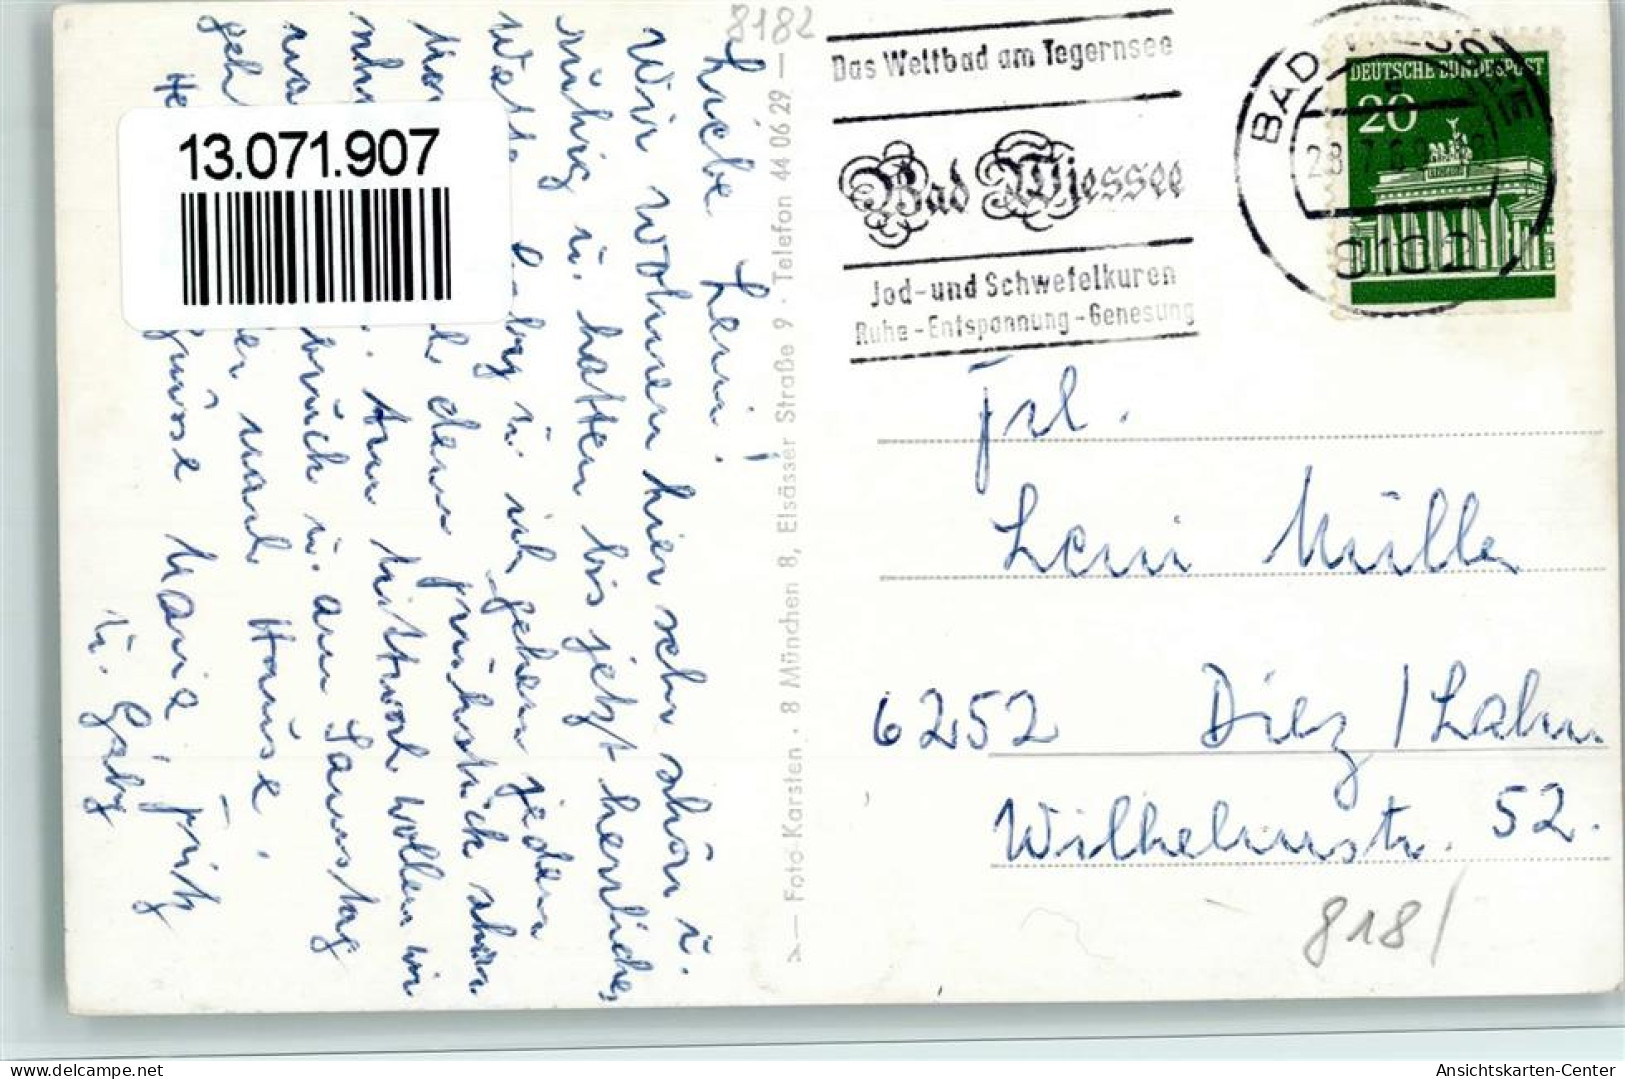 8182
Liebe Leni!
Wir wohnen hier sehr schön u.
ruhig u. hatten bis jetzt herrliches
Wetter. Gaby u. ich gehen jeden
dem Frühstück schon
Am Mittwoch wollen wir
u. am Samstag
nach Hause.
Grüsse Maria, Fritz
u. Gaby
13.071.907
Foto-Karsten · 8 München 8, Elsässer Straße 9 · Telefon 44 06 29
Das Weltbad am Tegernsee
Bad Wiessee
Jod-und Schwefelkuren
Ruhe-Entspannung-Genesung
BAD WIESSEE
28.7.69
8182
DEUTSCHE BUNDESPOST
20
Frl.
Leni Müller
6252 Diez / Lahn
Wilhelmstr. 52.
8181
delcampe.net
Ansichtskarten-Center